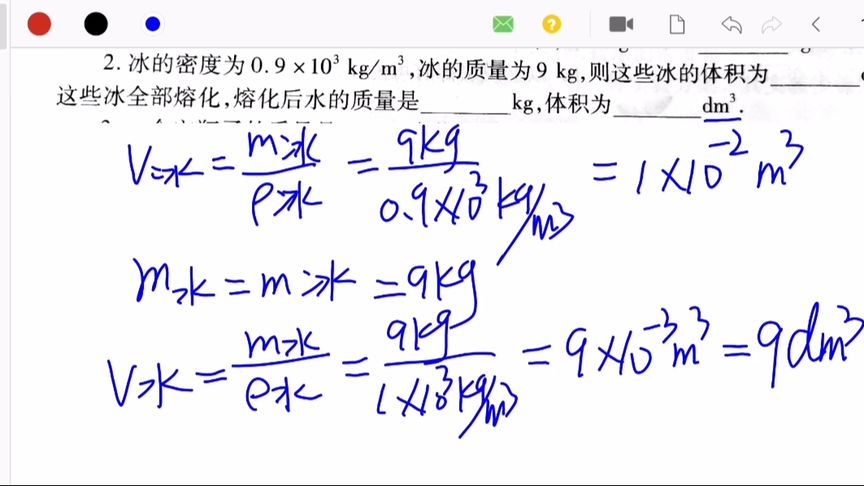 2. 冰的密度为 0.9 × 10³ kg/m³ ,冰的质量为 9 kg,则这些冰的体积为
这些冰全部熔化,熔化后水的质量是________kg,体积为________dm³.
V冰 = m冰/ρ冰 = 9kg/0.9×10³kg/m³ = 1×10⁻² m³
m水 = m冰 = 9kg
V水 = m水/ρ水 = 9kg/1×10³kg/m³ = 9×10⁻³m³ = 9dm³